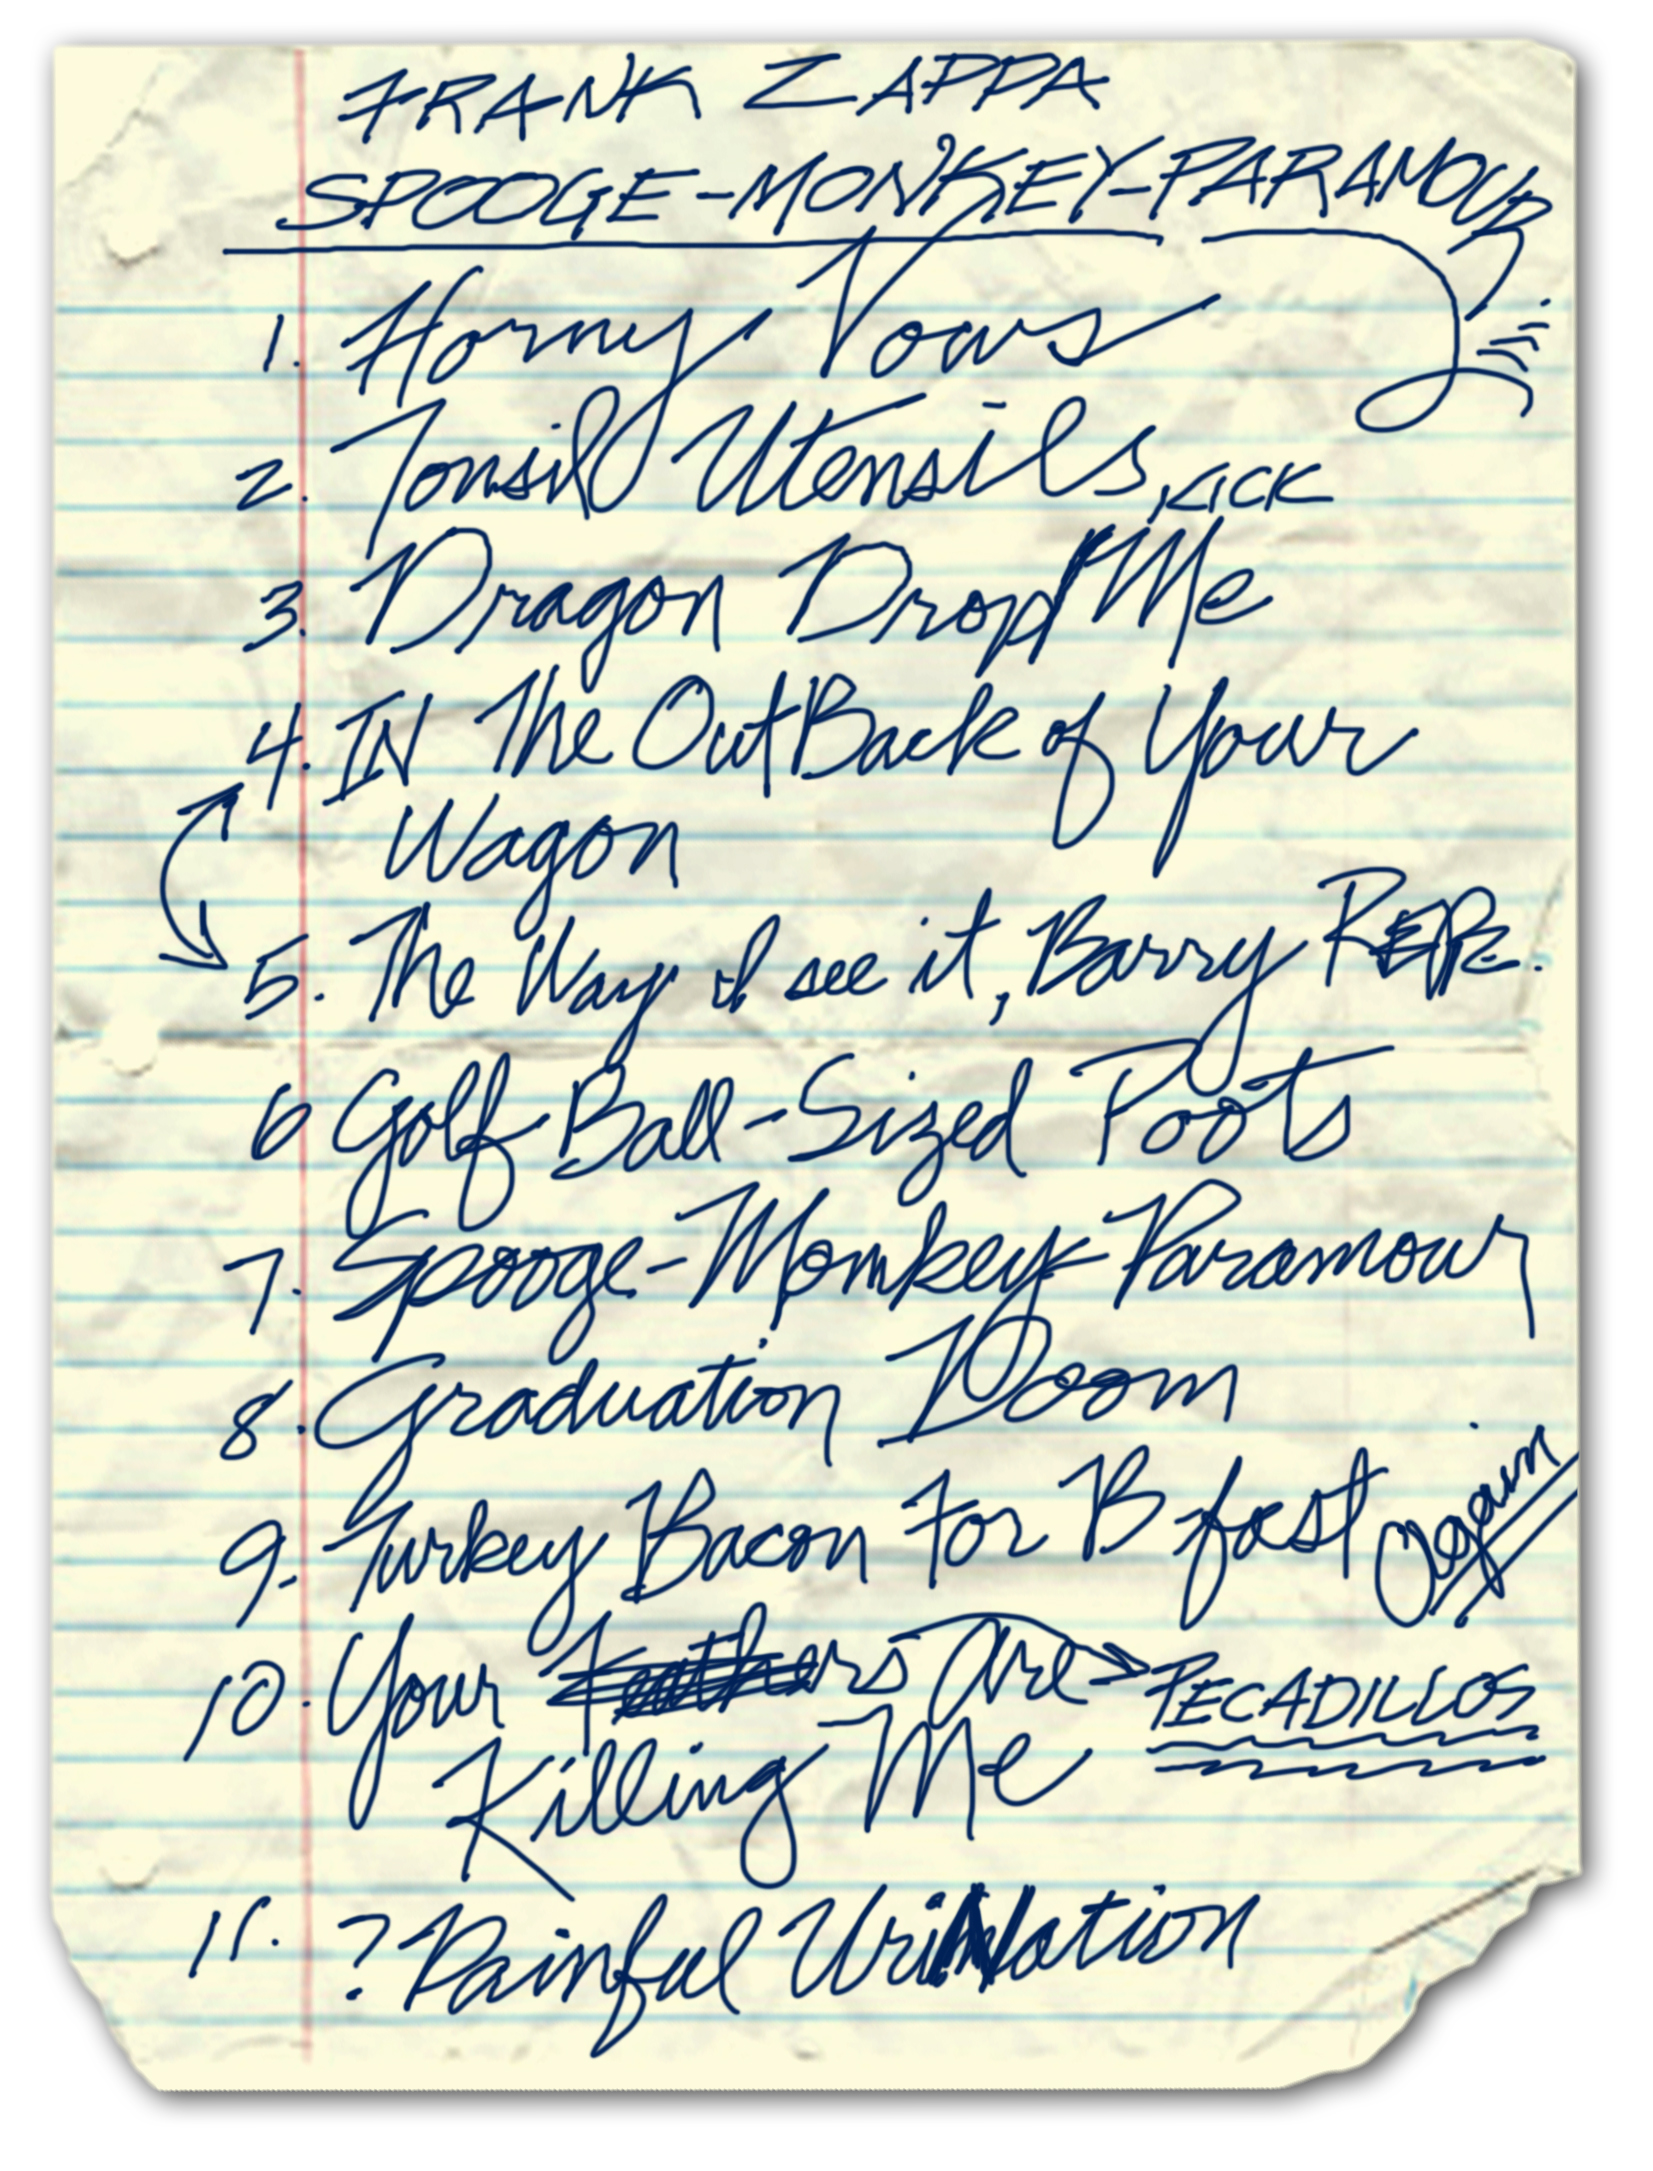 FRANK ZAPPA
SPOOGE-MONKEY-PARAMOUR
1. Horny Vows
2. Tonsil Utensils, KICK
3. Dragon Drop Me
4. IN The OutBack of Your
Wagon
5. The Way I see it, Barry
6 Golf Ball-Sized Poots
7. Spooge-Monkey-Paramour
8. Graduation Doom
9. Turkey Bacon For B fast Again
10. Your Feathers are PECADILLOS
Killing Me
11. ? Painful UriNation